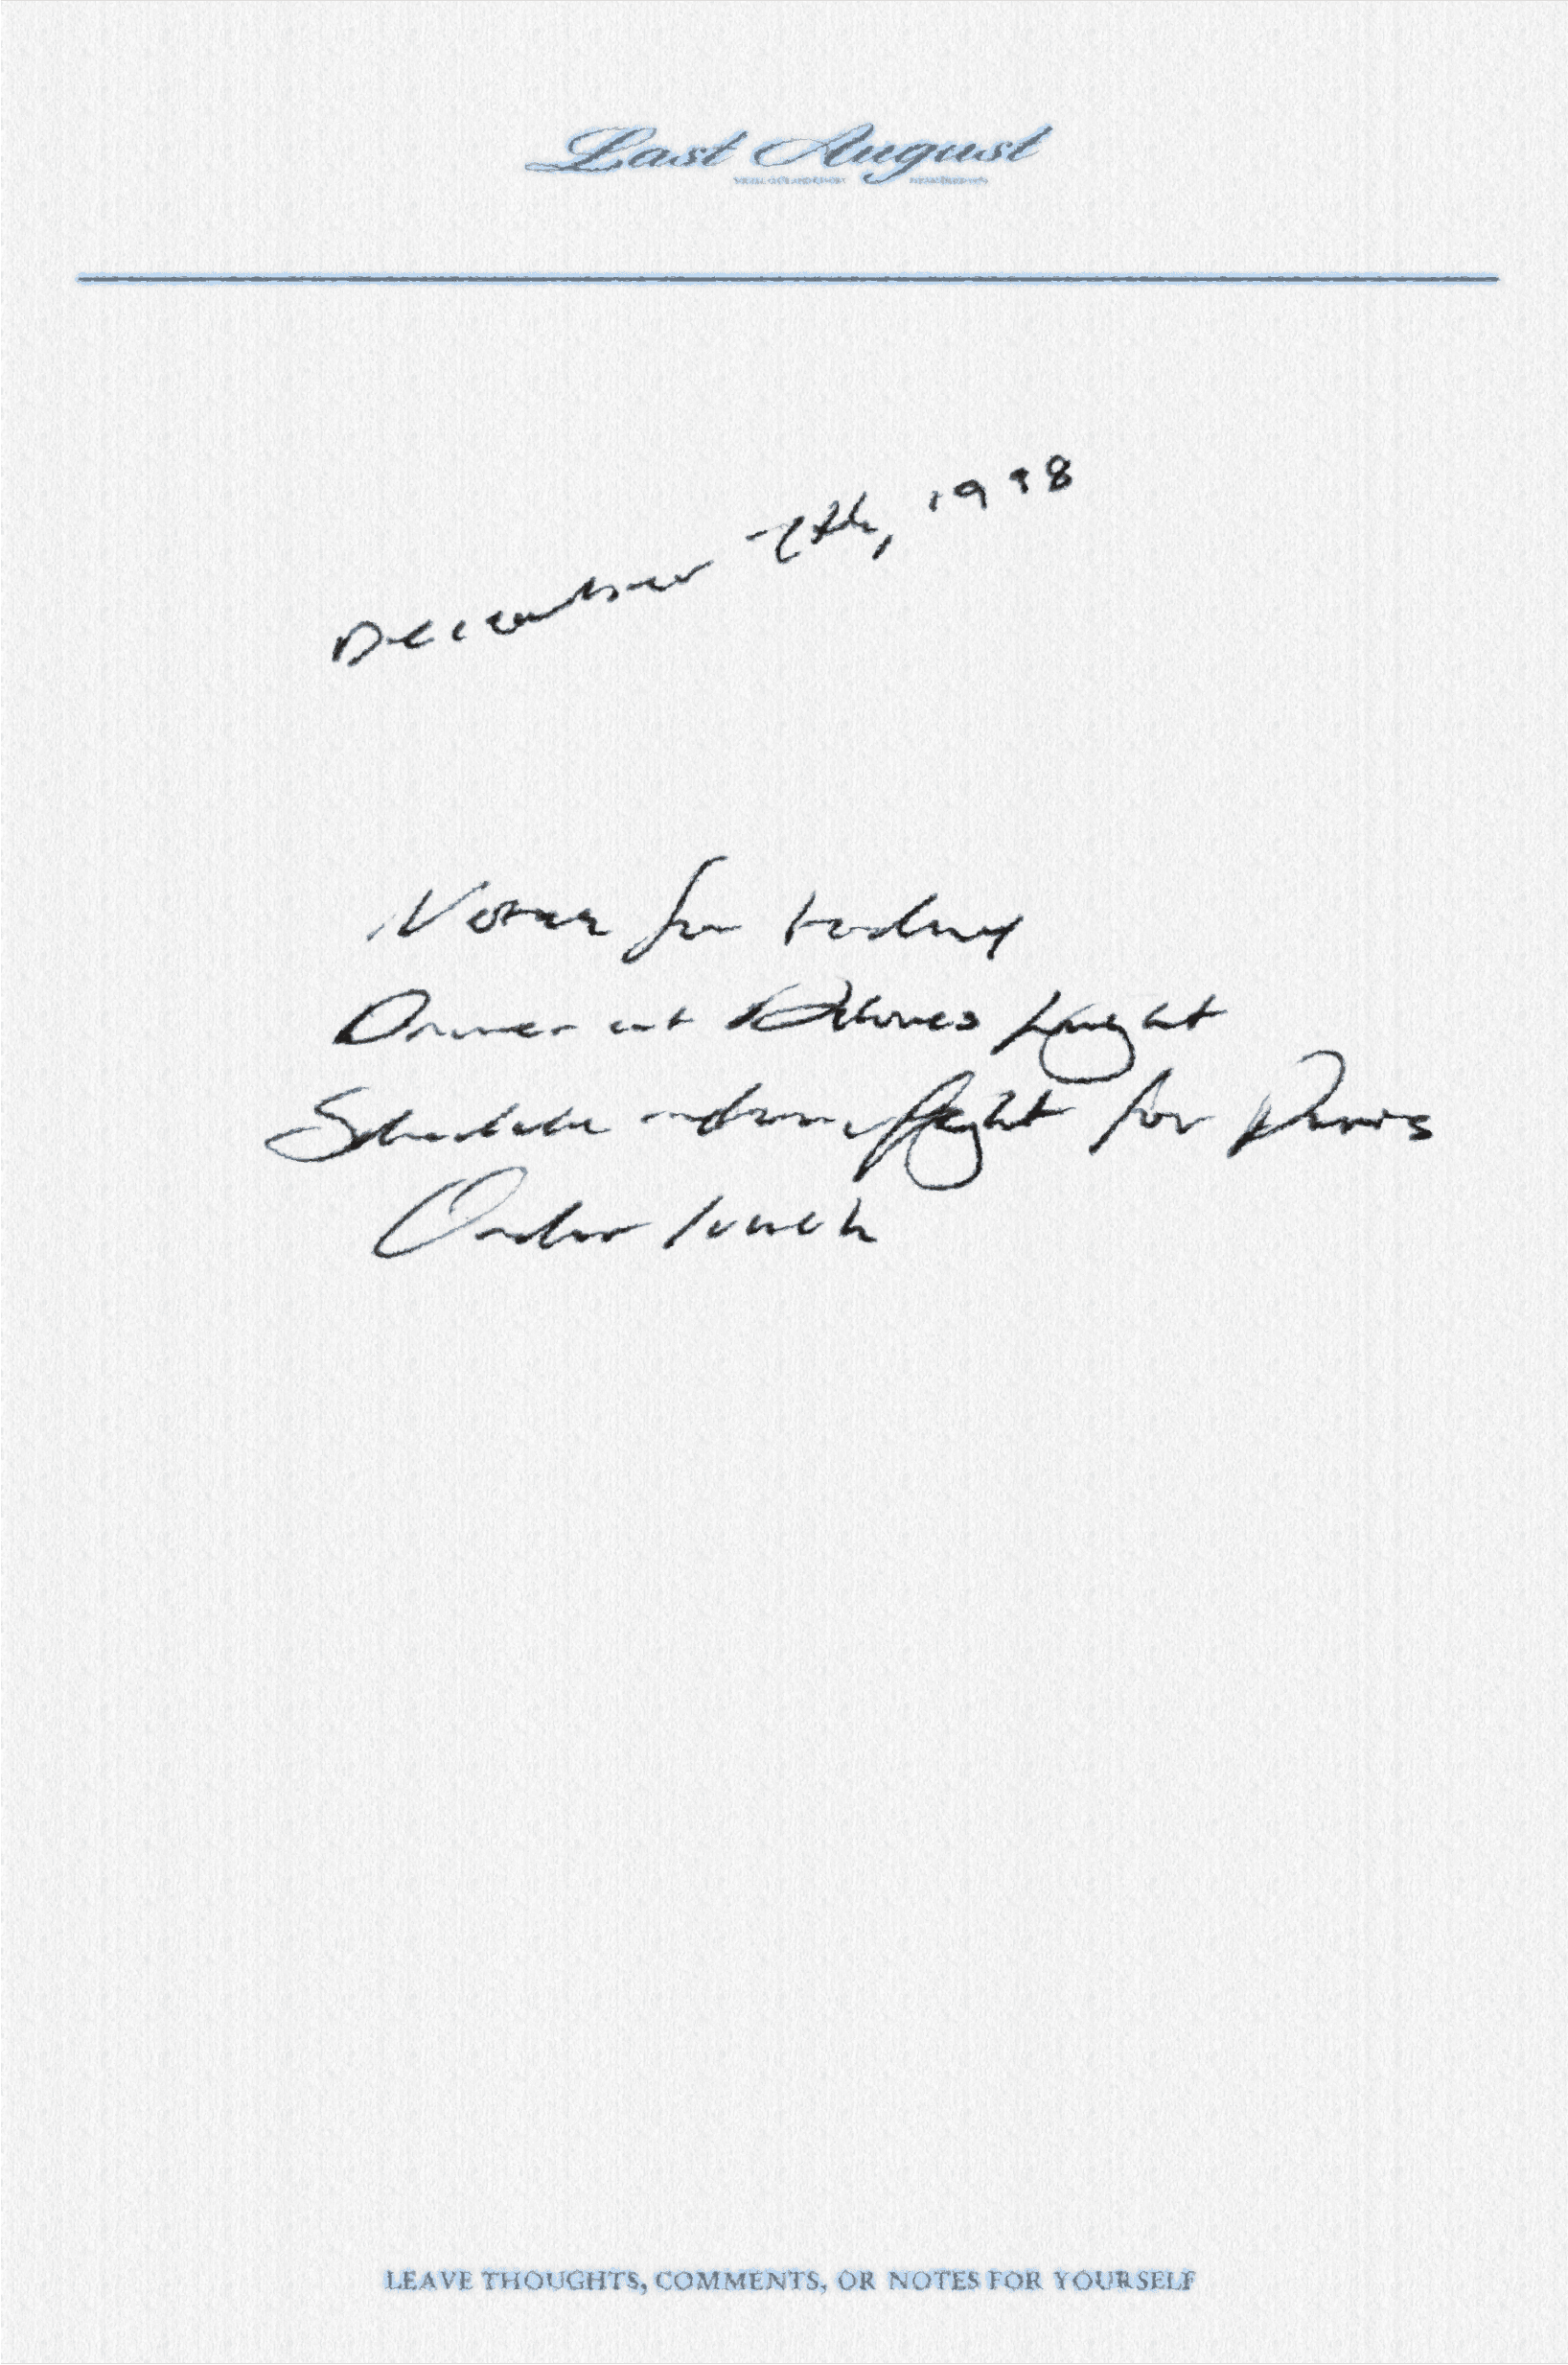 Last August
December 7th, 1998
Notes for today
Dinner at
Schedule flight for Paris
Order lunch
LEAVE THOUGHTS, COMMENTS, OR NOTES FOR YOURSELF